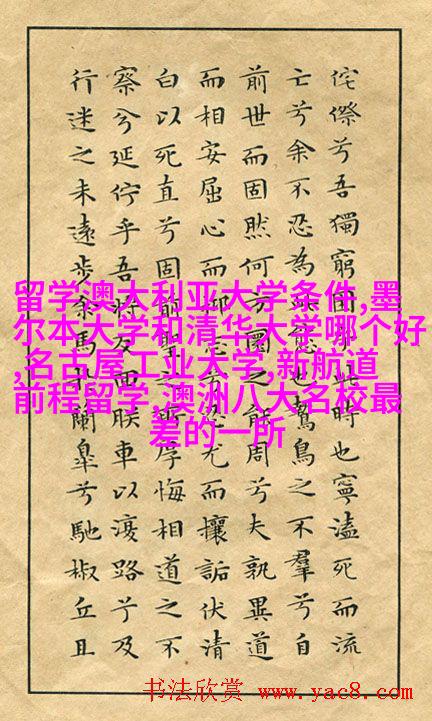 侘傺兮吾獨窮困乎此時也寧溘死而流
亡兮余不忍為此態也鷙鳥之不羣兮自
前世而固然何方圜之能周兮夫孰異道
而相安屈心而抑志兮忍尤而攘詬伏清
白以死直兮固前聖之所厚悔相道之不
察兮延佇乎吾將反回朕車以復路兮及
行迷之未遠步余馬於蘭皋兮馳椒丘且
留学澳大利亚大学条件,墨
尔本大学和清华大学哪个好
,名古屋工业大学,新航道
前程留学,澳洲八大名校最
差的一所
书法欣赏 www.yac8.com